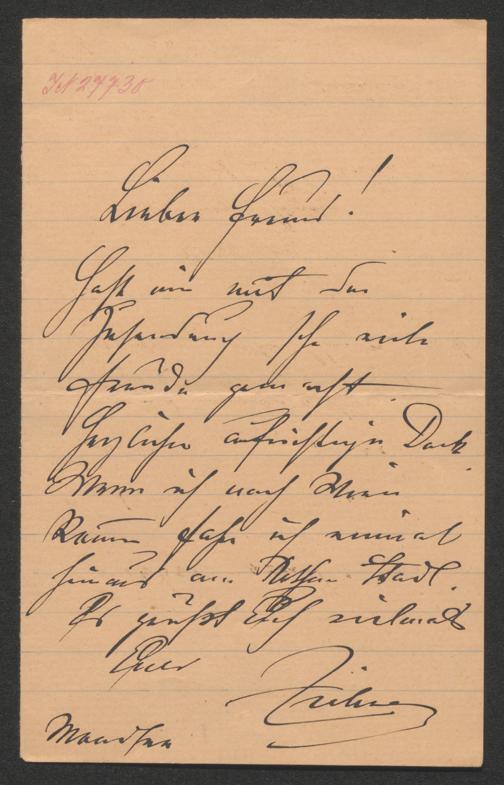 IN 27730
Lieber Freund!
Hast mir mit der
Zusendung sehr viele
Freude gemacht
Herzlichen aufrichtigen Dank.
Wenn ich nach Wien
komme fahr ich einmal
hinaus am Stadl.
Es grüßt Dich vielmals
Euer
Mondsee